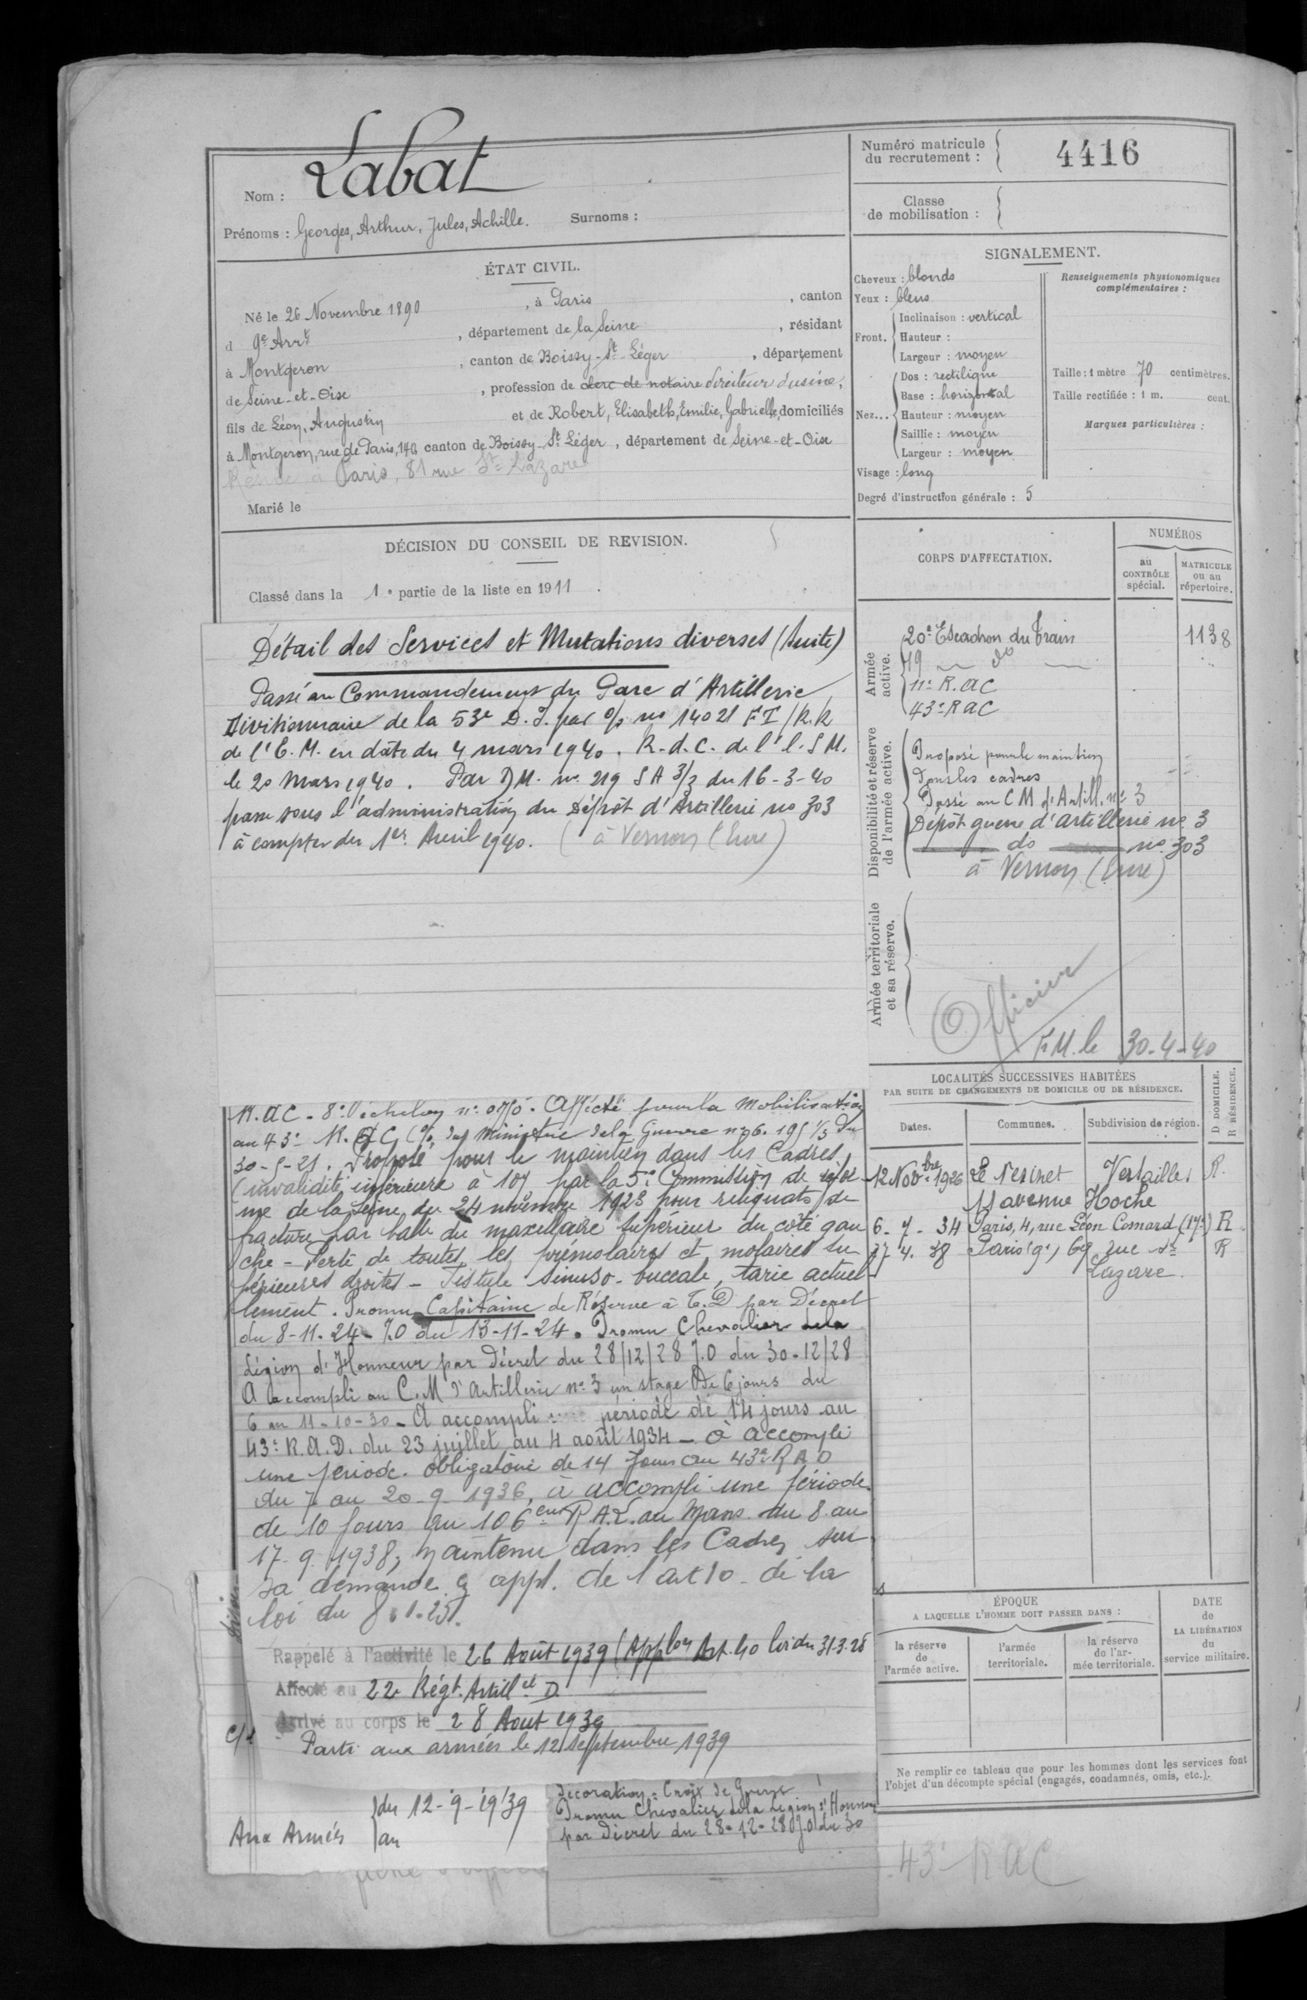 Nom : Labat
Prénoms : Georges, Arthur, Jules, Achille. Surnoms :
ÉTAT CIVIL.
Né le 26 Novembre 1890, à Paris, canton
d 9e Arrt, département de la Seine, résidant
à Montgeron, canton de Boissy-St-Léger, département
de Seine-et-Oise, profession de clerc de notaire directeur d'usine,
fils de Léon, Augustin et de Robert, Elisabeth, Emilie, Gabrielle, domiciliés
à Montgeron, rue de Paris, 140, canton de Boissy St Léger, département de Seine-et-Oise
Réside à Paris, 81 rue St Lazare
Marié le
DÉCISION DU CONSEIL DE REVISION.
Classé dans la 1e partie de la liste en 1911.
Détail des Services et Mutations diverses (Suite)
Passé au Commandement du Parc d'Artillerie
Divisionnaire de la 53e D.I. par o/s no 14021 FT/R.R
de l'E.M. en date du 4 mars 1940. R.d.C. de l'I.S.M.
le 20 Mars 1940. Par DM. no 219 SA 3/3 du 16-3-40
passe sous l'administration du Dépôt d'Artillerie no 303
à compter du 1er Avril 1940. (à Vernon (Eure)
R.A.C - 8e échelon no 0770. Affecté pour la Mobilisation
au 43e R.A.C (% du Ministre de la Guerre no 96.195 1/3 du
30-5-21. Proposé pour le maintien dans les Cadres
(invalidité inférieure à 10% par la 5e Commission de réfor
me de la Seine du 24 novembre 1923 pour reliquats de
fracture par balle du maxillaire supérieur du côté gau
che - Perte de toutes les prémolaires et molaires su
périeures droites - Fistule sinuso-buccale, tarie actuel
lement. Promu Capitaine de Réserve à T.D par Décret
du 8-11-24 J.O du 13-11-24. Promu Chevalier de la
Légion d'Honneur par Décret du 28/12/28 J.O du 30-12/28
A accompli au C.M d'Artillerie no 3 un stage de 6 jours du
6 au 11-10-30 - A accompli une période de 14 jours au
43e R.A.D. du 23 juillet au 4 août 1934 - à accompli
une période obligatoire de 14 Jours au 43e R A D
du 7 au 20-9-1936, à accompli une période
de 10 Jours au 106eme R.A.L. au Mans du 8 au
17-9-1938, Maintenu dans les Cadres sur
sa demande en appl. de l'art 10 de la
loi du 8-1-25.
Rappelé à l'activité le 26 Août 1939 (Appl on Art. 40 loi du 31.3.28
Affecté au 22e Régt. Artill ie D
Arrivé au corps le 28 Aout 1939
Parti aux armées le 12 septembre 1939
Aux Armées du 12-9-1939
au
Décoration : Croix de Guerre
Promu Chevalier de la Légion d'Honneur
par Décret du 28-12-28 J.O du 30
Numéro matricule du recrutement : 4416
Classe de mobilisation :
SIGNALEMENT.
Cheveux : blonds
Yeux : bleus
Front. Inclinaison : vertical
Hauteur :
Largeur : moyen
Nez... Dos : rectiligne
Base : horizontal
Hauteur : moyen
Saillie : moyen
Largeur : moyen
Visage : long
Renseignements physionomiques complémentaires :
Taille : 1 mètre 70 centimètres.
Taille rectifiée : 1 m. cent.
Marques particulières :
Degré d'instruction générale : 5
CORPS D'AFFECTATION.
NUMÉROS
au CONTRÔLE spécial.
MATRICULE ou au répertoire.
Armée active.
20e Escadron du Train 1138
19 do
11e R.A.C
43e R A C
Disponibilité et réserve de l'armée active.
Proposé pour le maintien
dans les cadres
Passé au C M d'Artill. no 3
Dépôt guerre d'artillerie no 3
do no 303
à Vernon (Eure)
Armée territoriale et sa réserve.
Officier
F.M. le 30-4-40
LOCALITÉS SUCCESSIVES HABITÉES
PAR SUITE DE CHANGEMENTS DE DOMICILE OU DE RÉSIDENCE.
Dates. Communes. Subdivision de région. D DOMICILE. R RÉSIDENCE.
12 Novbre 1926 Le Vésinet Versailles R.
11 avenue Hoche
6-7-34 Paris, 4, rue Léon Comard (17e) R
27.4.38 Paris 9e, 69 rue St R
Lazare.
ÉPOQUE
A LAQUELLE L'HOMME DOIT PASSER DANS :
la réserve de l'armée active.
l'armée territoriale.
la réserve de l'armée territoriale.
DATE de LA LIBÉRATION du service militaire.
Ne remplir ce tableau que pour les hommes dont les services font
l'objet d'un décompte spécial (engagés, condamnés, omis, etc.).
43e RAC